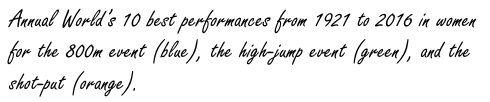 Annual World's 10 best performances from 1921 to 2016 in women
for the 800m event (blue), the high-jump event (green), and the
shot-put (orange).